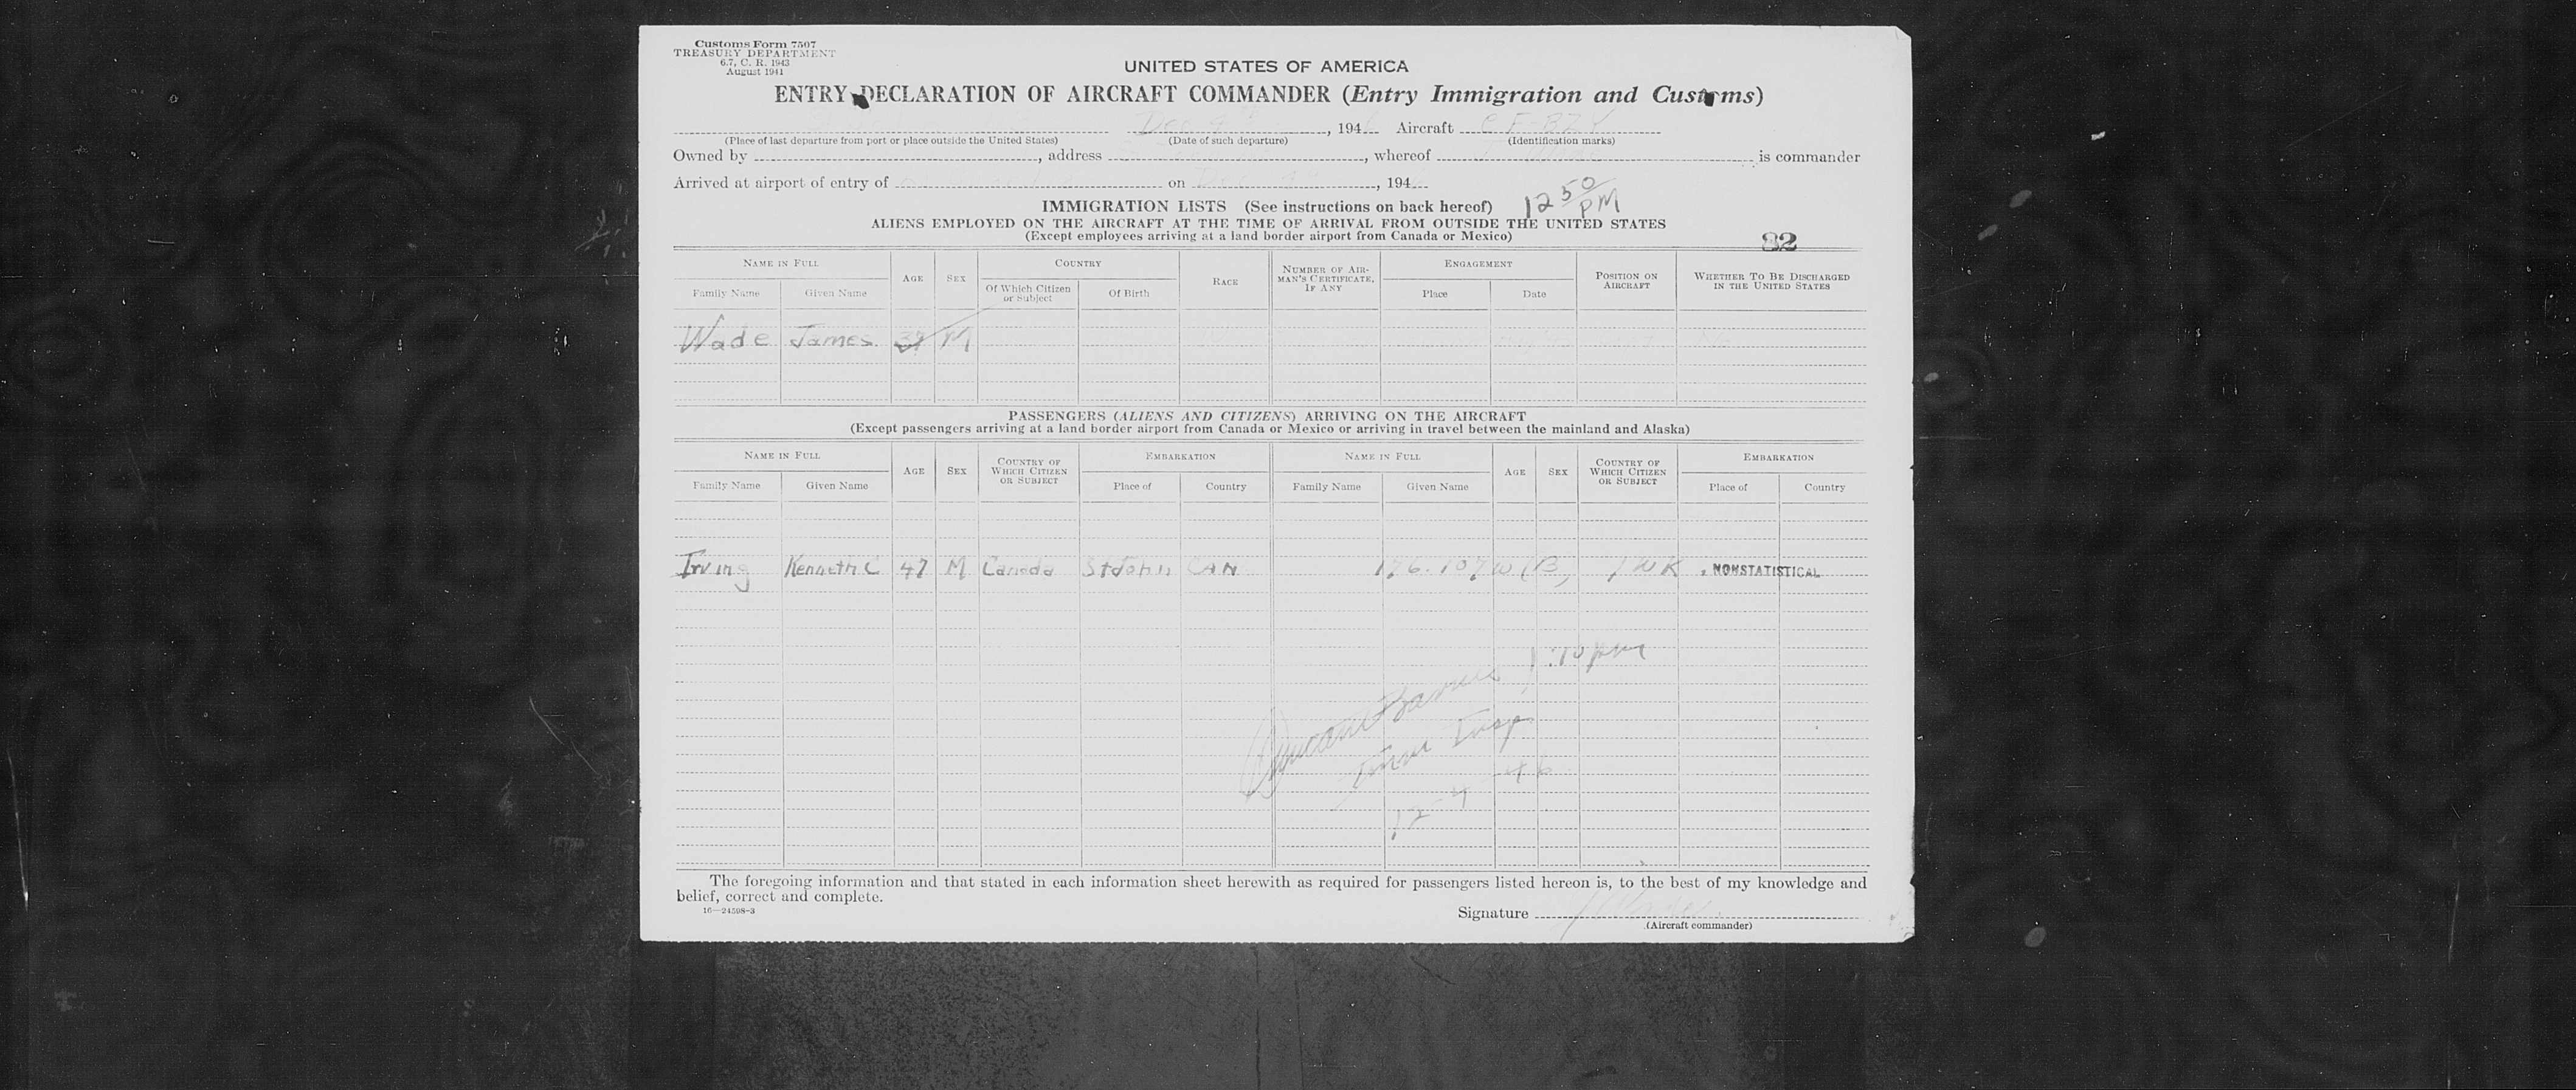 Customs Form 7507
TREASURY DEPARTMENT
6.7, C. R. 1943
August 1941
UNITED STATES OF AMERICA
ENTRY DECLARATION OF AIRCRAFT COMMANDER (Entry Immigration and Customs)
Dec, 194 Aircraft CF-BZY
(Place of last departure from port or place outside the United States) (Date of such departure) (Identification marks)
Owned by , address , whereof is commander
Arrived at airport of entry of on Dec , 194
12 50/PM
IMMIGRATION LISTS (See instructions on back hereof)
ALIENS EMPLOYED ON THE AIRCRAFT AT THE TIME OF ARRIVAL FROM OUTSIDE THE UNITED STATES
(Except employees arriving at a land border airport from Canada or Mexico)
32
NAME IN FULL AGE SEX COUNTRY RACE NUMBER OF AIRMAN'S CERTIFICATE, IF ANY ENGAGEMENT POSITION ON AIRCRAFT WHETHER TO BE DISCHARGED IN THE UNITED STATES
Family Name Given Name Of Which Citizen or Subject Of Birth Place Date
Wade James 37 M
PASSENGERS (ALIENS AND CITIZENS) ARRIVING ON THE AIRCRAFT
(Except passengers arriving at a land border airport from Canada or Mexico or arriving in travel between the mainland and Alaska)
NAME IN FULL AGE SEX COUNTRY OF WHICH CITIZEN OR SUBJECT EMBARKATION NAME IN FULL AGE SEX COUNTRY OF WHICH CITIZEN OR SUBJECT EMBARKATION
Family Name Given Name Place of Country Family Name Given Name Place of Country
Irving Kenneth C 47 M Canada St John CAN 176.107 W (B) 1 WK NONSTATISTICAL
1:10 pm
Imm Insp
12-4-46
The foregoing information and that stated in each information sheet herewith as required for passengers listed hereon is, to the best of my knowledge and
belief, correct and complete.
16—24598-3
Signature
(Aircraft commander)